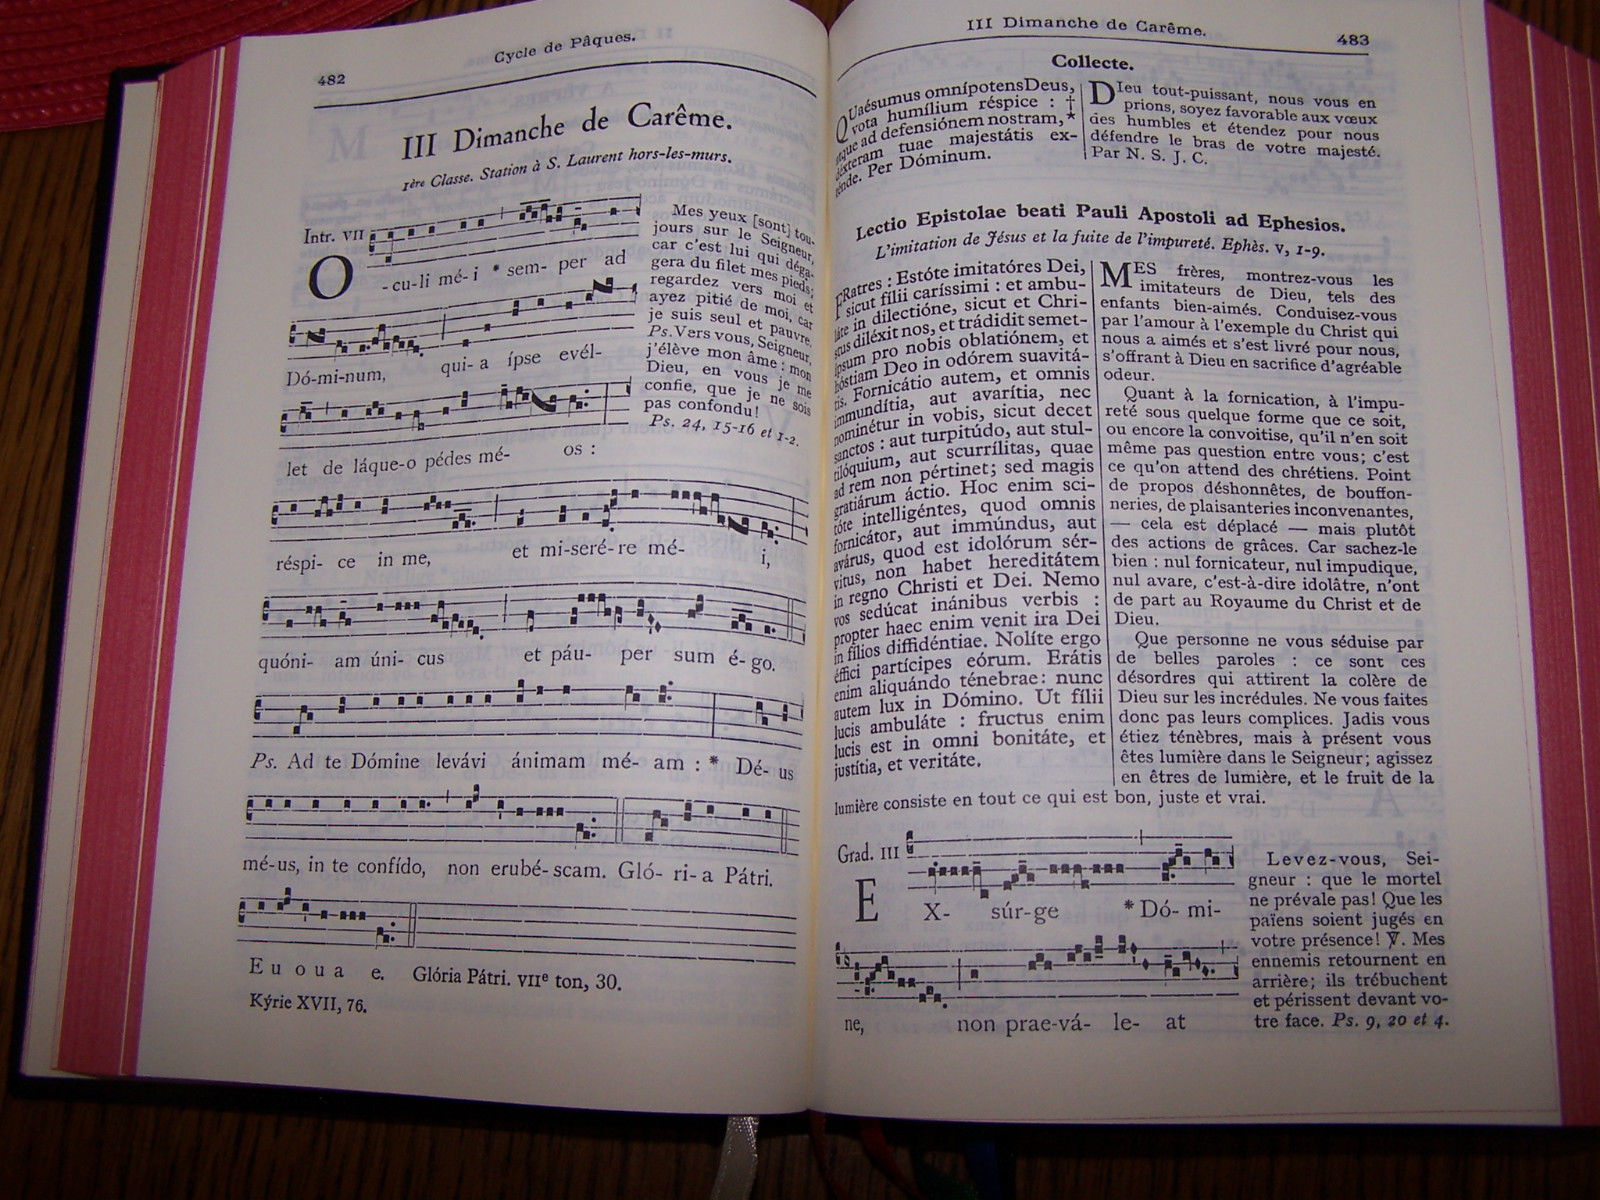 482
Cycle de Pâques.
III Dimanche de Carême.
1ère Classe. Station à S. Laurent hors-les-murs.
Intr. VII
O
-cu-li mé-i * sem- per ad
Dó-mi-num, qui-a ípse evél-
let de láque-o pédes mé- os :
réspi- ce in me, et mi-seré-re mé- i,
quóni- am úni- cus et páu- per sum é-go.
Ps. Ad te Dómine levávi ánimam mé- am : * Dé- us
mé-us, in te confído, non erubé-scam. Gló- ri-a Pátri.
E u o u a e. Glória Pátri. VIIe ton, 30.
Kýrie XVII, 76.
Mes yeux [sont] tou-
jours sur le Seigneur,
car c'est lui qui déga-
gera du filet mes pieds;
regardez vers moi et
ayez pitié de moi, car
je suis seul et pauvre.
Ps. Vers vous, Seigneur,
j'élève mon âme : mon
Dieu, en vous je me
confie, que je ne sois
pas confondu!
Ps. 24, 15-16 et 1-2.
III Dimanche de Carême.
483
Collecte.
QUaésumus omnípotens Deus,
vota humílium réspice : †
atque ad defensiónem nostram, *
déxteram tuae majestátis ex-
ténde. Per Dóminum.
DIeu tout-puissant, nous vous en
prions, soyez favorable aux vœux
des humbles et étendez pour nous
défendre le bras de votre majesté.
Par N. S. J. C.
Lectio Epistolae beati Pauli Apostoli ad Ephesios.
L'imitation de Jésus et la fuite de l'impureté. Ephès. v, 1-9.
FRatres : Estóte imitatóres Dei,
sicut fílii caríssimi : et ambu-
láte in dilectióne, sicut et Chri-
stus diléxit nos, et trádidit semet-
ípsum pro nobis oblatiónem, et
hóstiam Deo in odórem suavitá-
tis. Fornicátio autem, et omnis
immundítia, aut avarítia, nec
nominétur in vobis, sicut decet
sanctos : aut turpitúdo, aut stul-
tilóquium, aut scurrílitas, quae
ad rem non pértinet; sed magis
gratiárum áctio. Hoc enim sci-
tóte intelligéntes, quod omnis
fornicátor, aut immúndus, aut
avárus, quod est idolórum sér-
vitus, non habet hereditátem
in regno Christi et Dei. Nemo
vos sedúcat inánibus verbis :
propter haec enim venit ira Dei
in fílios diffidéntiae. Nolíte ergo
éffici partícipes eórum. Erátis
enim aliquándo ténebrae : nunc
autem lux in Dómino. Ut fílii
lucis ambuláte : fructus enim
lucis est in omni bonitáte, et
justítia, et veritáte.
MES frères, montrez-vous les
imitateurs de Dieu, tels des
enfants bien-aimés. Conduisez-vous
par l'amour à l'exemple du Christ qui
nous a aimés et s'est livré pour nous,
s'offrant à Dieu en sacrifice d'agréable
odeur.
Quant à la fornication, à l'impu-
reté sous quelque forme que ce soit,
ou encore la convoitise, qu'il n'en soit
même pas question entre vous; c'est
ce qu'on attend des chrétiens. Point
de propos déshonnêtes, de bouffon-
neries, de plaisanteries inconvenantes,
— cela est déplacé — mais plutôt
des actions de grâces. Car sachez-le
bien : nul fornicateur, nul impudique,
nul avare, c'est-à-dire idolâtre, n'ont
de part au Royaume du Christ et de
Dieu.
Que personne ne vous séduise par
de belles paroles : ce sont ces
désordres qui attirent la colère de
Dieu sur les incrédules. Ne vous faites
donc pas leurs complices. Jadis vous
étiez ténèbres, mais à présent vous
êtes lumière dans le Seigneur; agissez
en êtres de lumière, et le fruit de la
lumière consiste en tout ce qui est bon, juste et vrai.
Grad. III
E
X- súr-ge * Dó- mi-
ne, non prae-vá- le- at
Levez-vous, Sei-
gneur : que le mortel
ne prévale pas! Que les
païens soient jugés en
votre présence! ℣. Mes
ennemis retournent en
arrière; ils trébuchent
et périssent devant vo-
tre face. Ps. 9, 20 et 4.